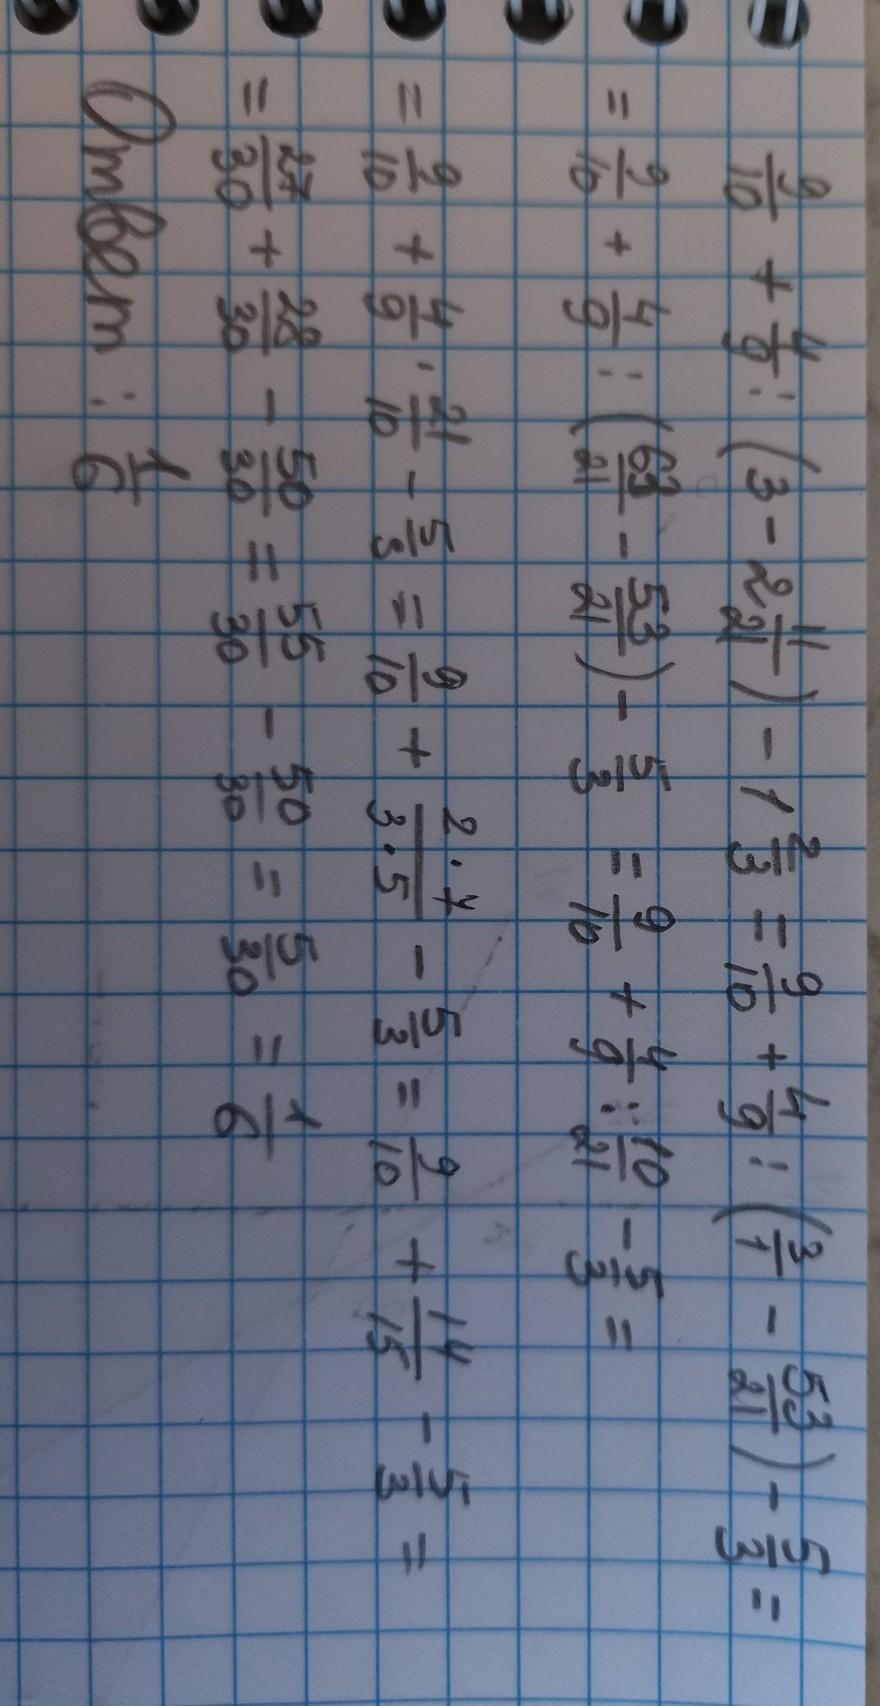 9/10 + 4/9 : (3 - 2 11/21) - 1 2/3 = 9/10 + 4/9 : (3/1 - 53/21) - 5/3 =
= 9/10 + 4/9 : (63/21 - 53/21) - 5/3 = 9/10 + 4/9 : 10/21 - 5/3 =
= 9/10 + 4/9 · 21/10 - 5/3 = 9/10 + 2·7/3·5 - 5/3 = 9/10 + 14/15 - 5/3 =
= 27/30 + 28/30 - 50/30 = 55/30 - 50/30 = 5/30 = 1/6
Ответ: 1/6